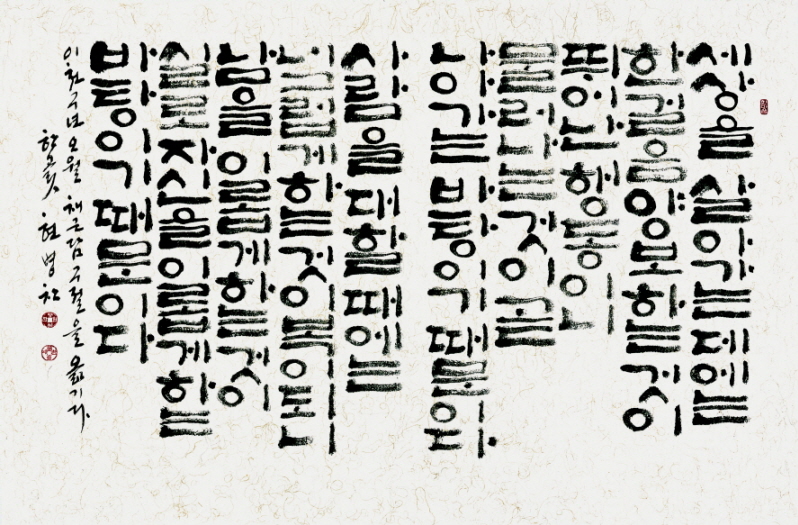 세상을 살아가는데에는
한걸음 양보하는것이
뛰어난 행동이니
물러나는것이 곧
나아가는 바탕이기 때문이다
사람을 대할 때에는
너그럽게 하는것이 복이 되니
남을 이롭게하는것이
실로 자신을 이롭게하는
바탕이기 때문이다
이천구년 오월 채근담 구절을 옮기다.
한곬 현병찬